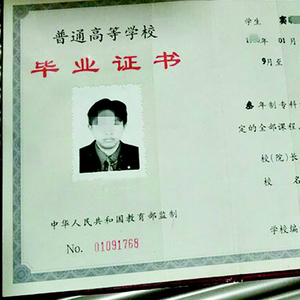 普通高等学校
毕业证书
中华人民共和国教育部监制
No. 01091768
学生
年 01 月
9月至
叁年制专科
定的全部课程、
校(院)长
校 名
学校编